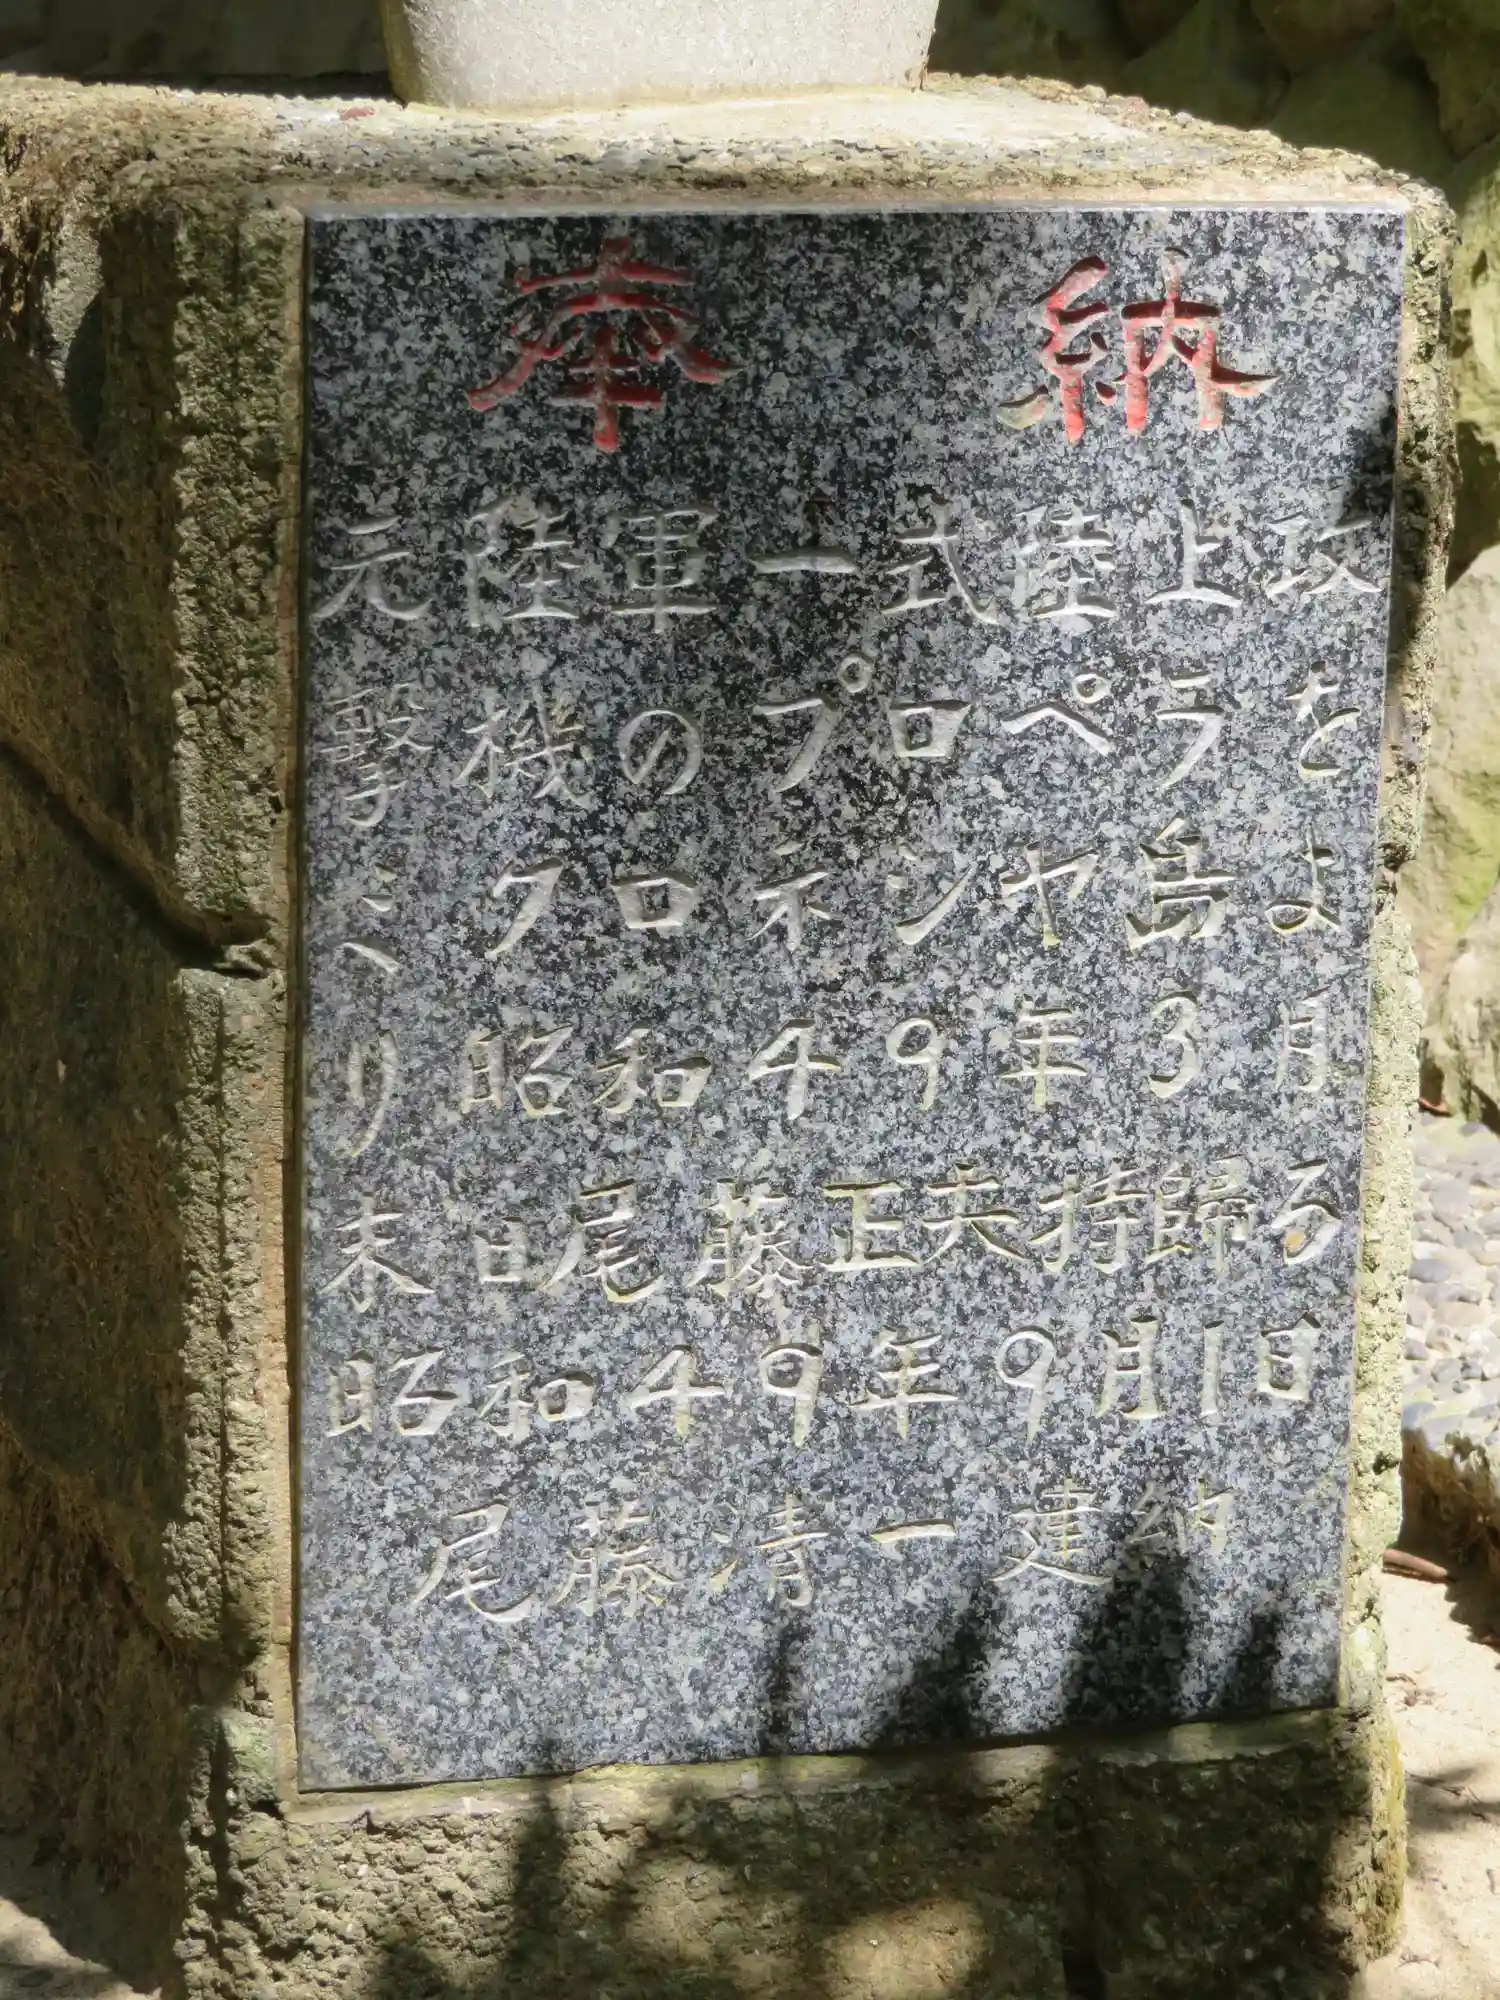 奉納
元陸軍一式陸上攻
撃機のプロペラを
ミクロネシヤ島よ
り昭和49年3月
末日尾藤正夫持歸る
昭和49年9月1日
尾藤清一建納